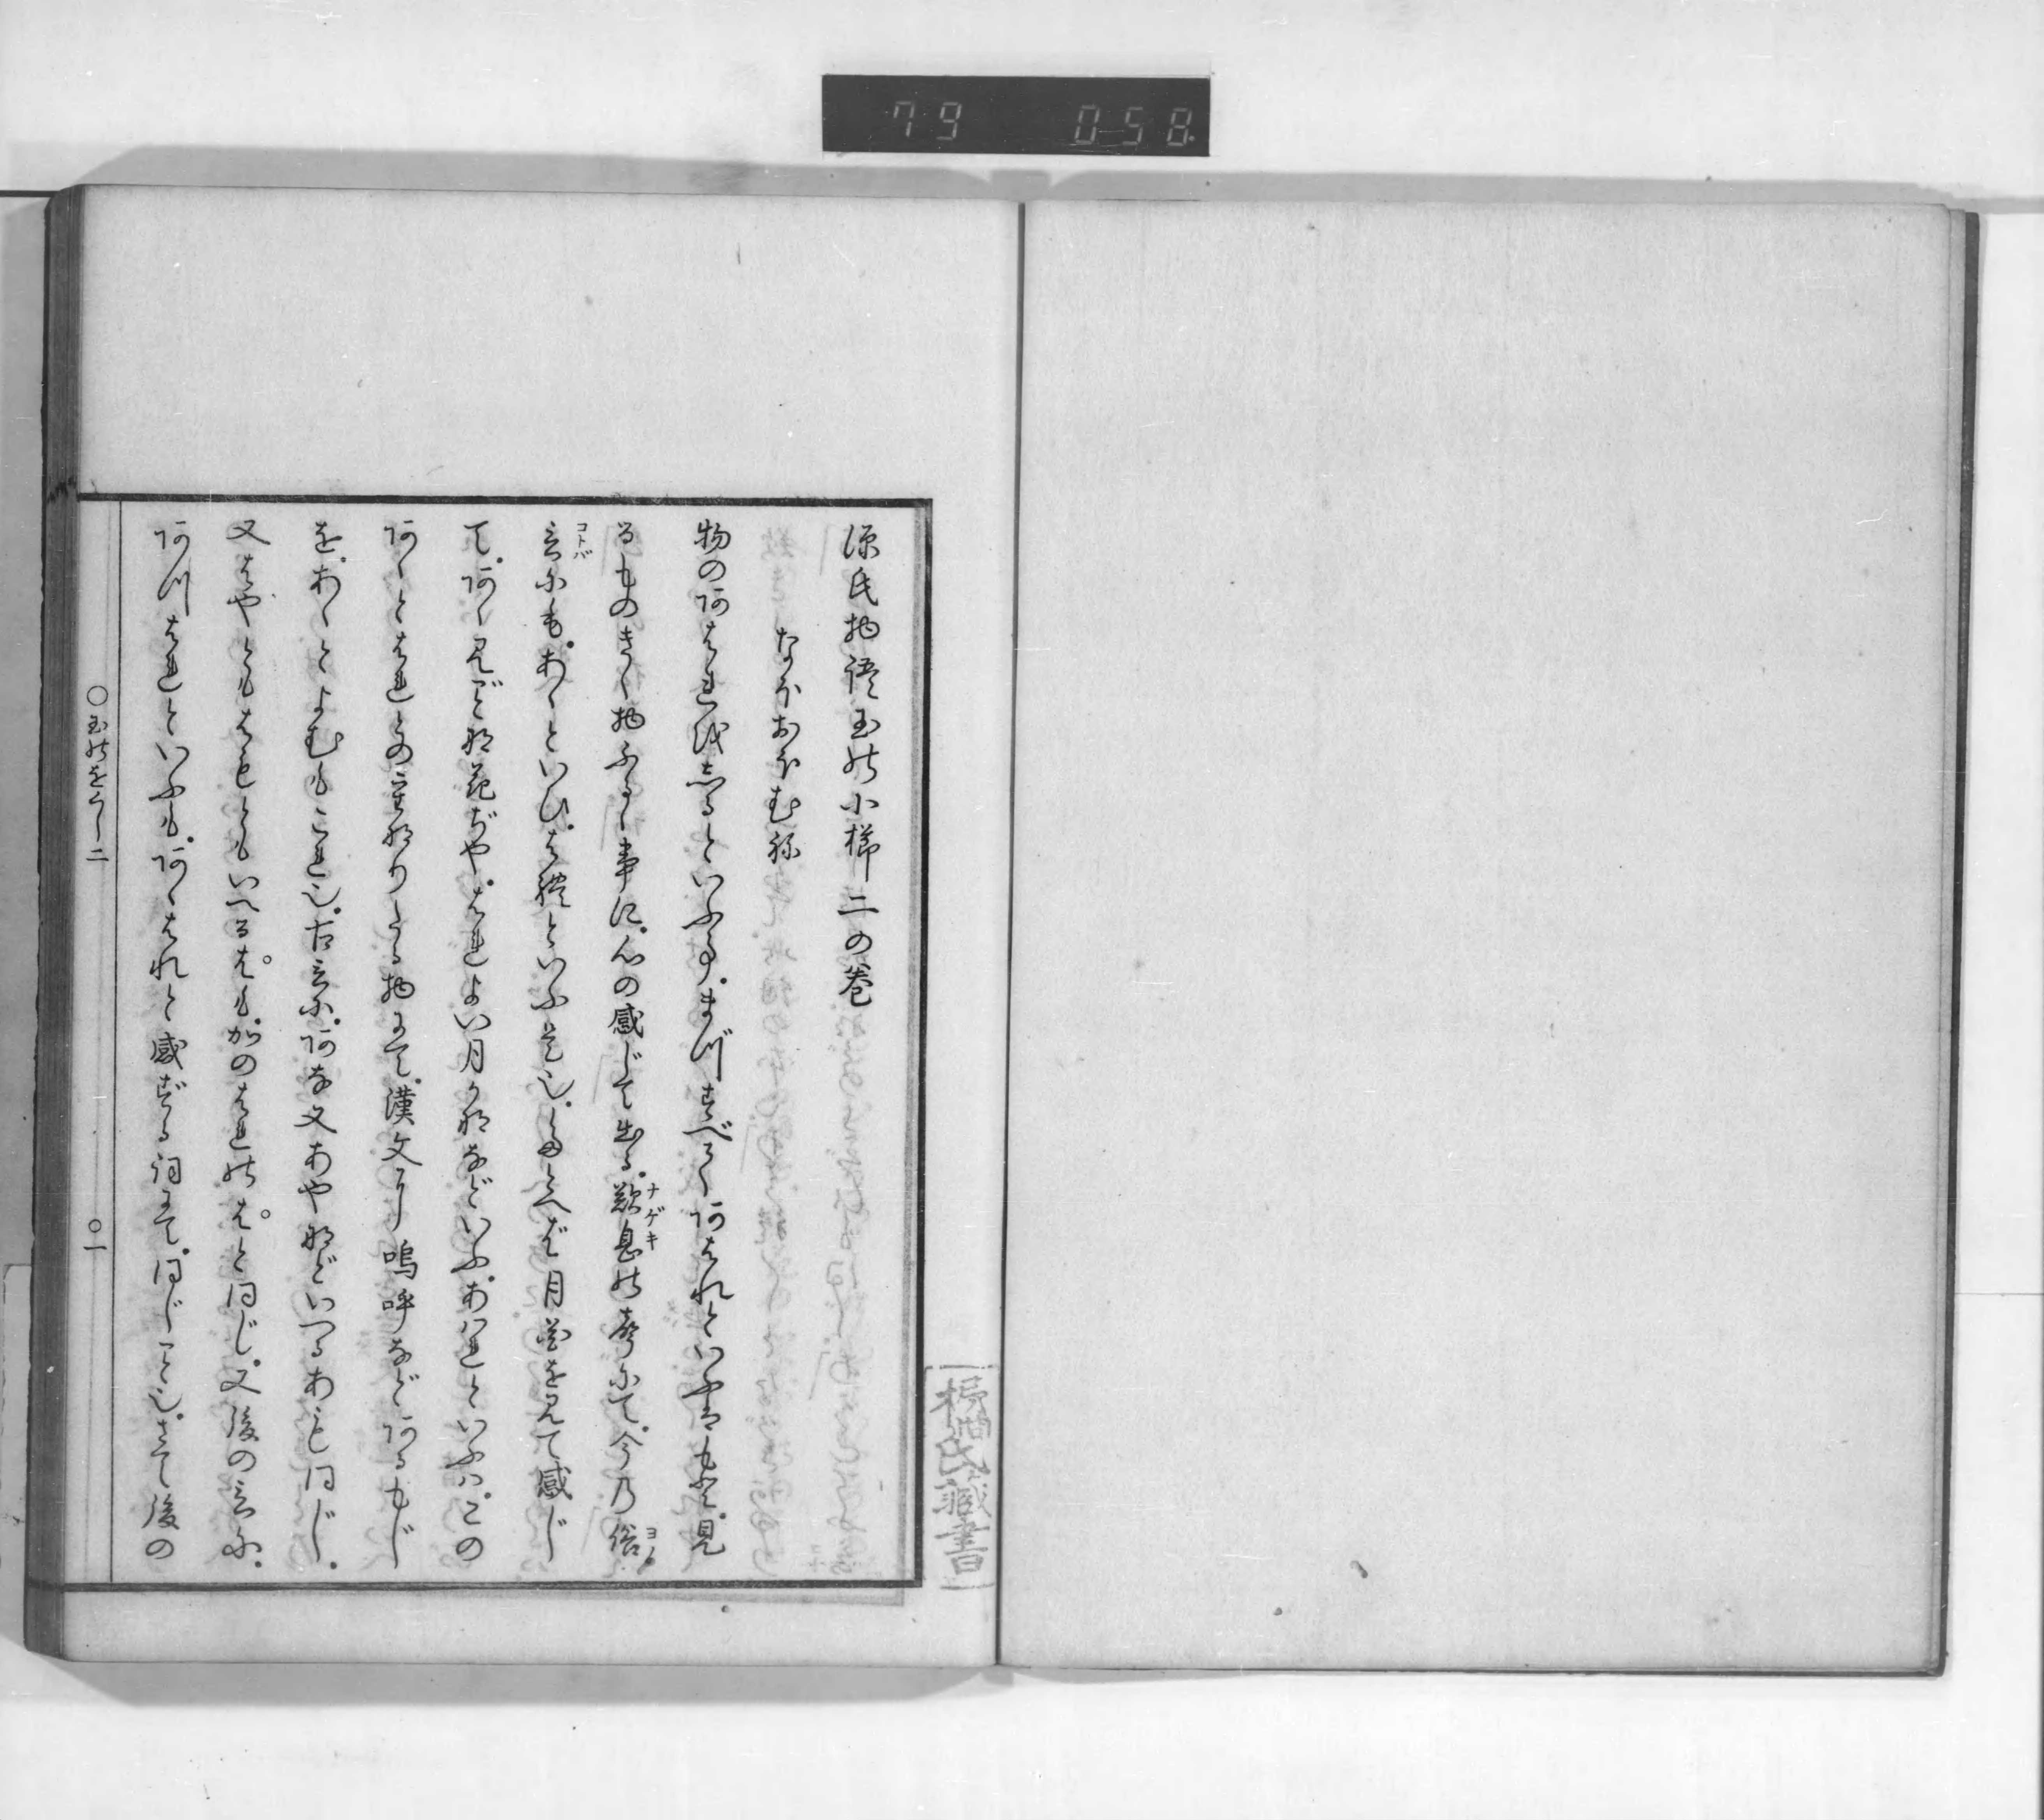 79 058
源氏物語玉の小櫛二の巻
なほおほむね
物のあはれをしるといふ事。まづすべてあはれといふはもと。見
るものきく物ふるゝ事に。心の感じて出る。歎息の聲にて。今の俗
ナゲキ
ヨノ
言にも。あゝといひ。はれといふ是也。たとへば月花を見て感じ
コトバ
て。あゝ見ごとな花ぢや。はれよい月かななどいふ。あはれといふは。この
あゝとはれとの重なりたる物にて。漢文に嗚呼などあるもじ
を。あゝとよむもこれ也。古言に。あな又あやなどいへるあも同じ。
又はやともはもともいへるは。も。かのはれのは。と同じ。又後の言に。
あつはれといふも。あゝはれと感ずる詞にて。同じこと也。さて後の
○玉のをぐし二
○一
氏藏書